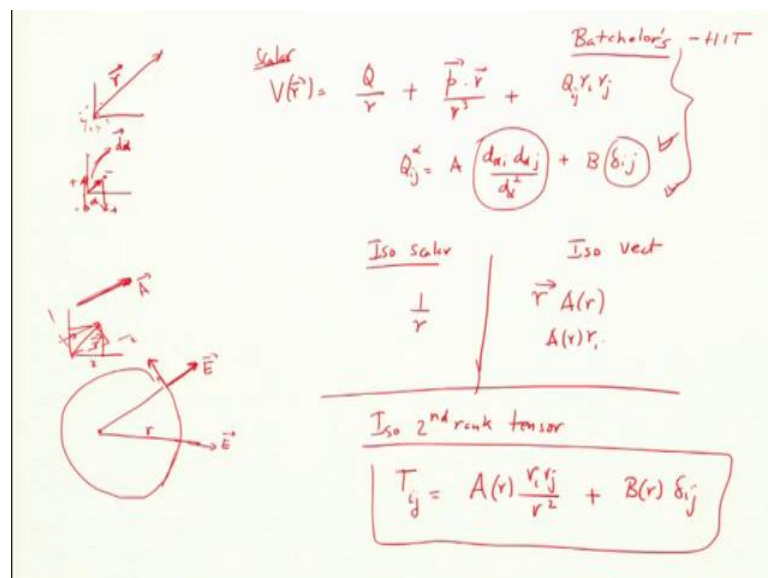 Batchelor's - HIT
Scalar
V(r⃗) = Q/r + p⃗·r⃗/r³ + Qij ri rj
Qij^α = A dαi dαj / dα² + B δij
Iso scalar
Iso vect
1/r
r⃗ A(r)
A(r) ri
Iso 2nd rank tensor
Tij = A(r) ri rj / r² + B(r) δij
r⃗
d⃗α
A⃗
E⃗
r
E⃗